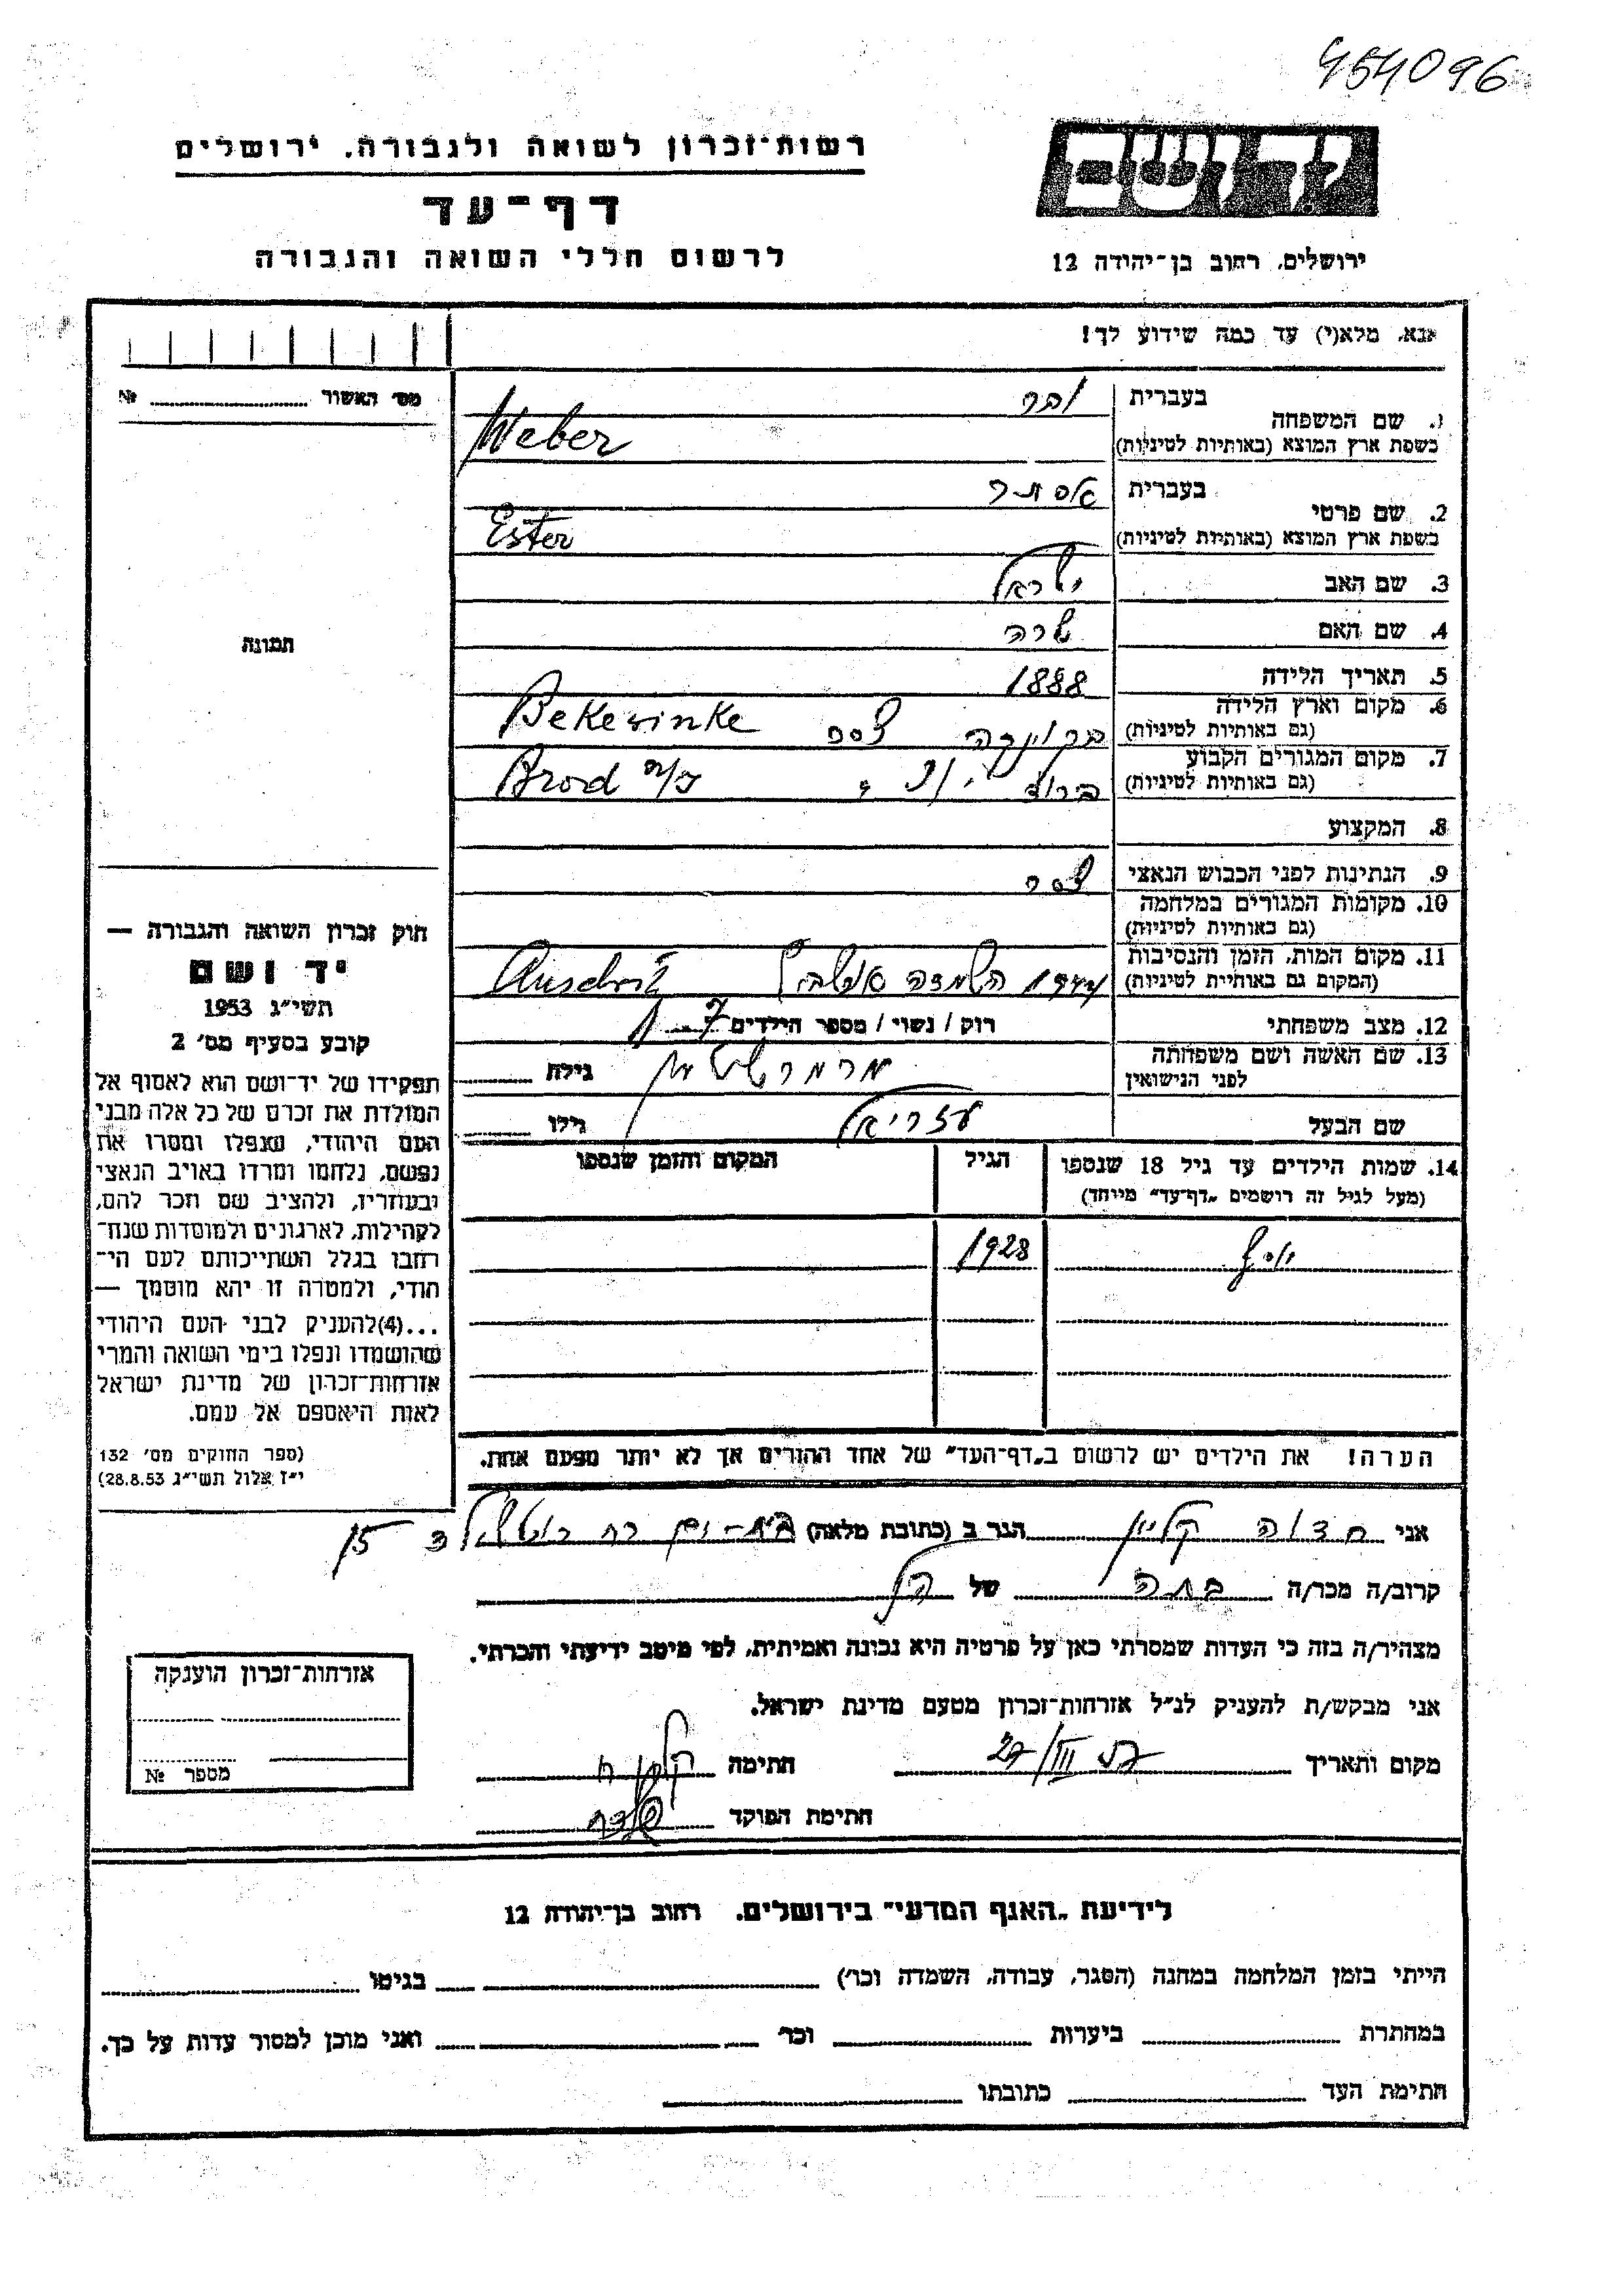 454096
יד ושם
ירושלים, רחוב בן־יהודה 12
רשות־זכרון לשואה ולגבורה, ירושלים
דף־עד
לרשום חללי השואה והגבורה
אנא, מלא(י) עד כמה שידוע לך!
מס' האשור №
תמונה
1. שם המשפחה בעברית ובר
בשפת ארץ המוצא (באותיות לטיניות) Weber
2. שם פרטי בעברית אסתר
בשפת ארץ המוצא (באותיות לטיניות) Ester
3. שם האב ישראל
4. שם האם שרה
5. תאריך הלידה 1888
6. מקום וארץ הלידה
(גם באותיות לטיניות) Bekevinke
7. מקום המגורים הקבוע
(גם באותיות לטיניות) ברוד Brod n/
8. המקצוע
9. הנתינות לפני הכבוש הנאצי
10. מקומות המגורים במלחמה
(גם באותיות לטיניות)
11. מקום המות, הזמן והנסיבות
(המקום גם באותיית לטיניות) 1944 השמדה
12. מצב משפחתי רוק / נשוי / מספר הילדים 7
13. שם האשה ושם משפחתה
לפני הנישואין גילה
שם הבעל עזריאל גילו
14. שמות הילדים עד גיל 18 שנספו הגיל המקום והזמן שנספו
(מעל לגיל זה רושמים „דף־עד" מייחד)
יוסף 1928
הערה! את הילדים יש לרשום ב„דף־העד" של אחד ההורים אך לא יותר מפעם אחת.
חוק זכרון השואה והגבורה —
יד ושם
תשי"ג 1953
קובע בסעיף מס' 2
תפקידו של יד־ושם הוא לאסוף אל
המולדת את זכרם של כל אלה מבני
העם היהודי, שנפלו ומסרו את
נפשם, נלחמו ומרדו באויב הנאצי
ובעוזריו, ולהציב שם וזכר להם,
לקהילות, לארגונים ולמוסדות שנח־
רחבו בגלל השתייכותם לעם הי־
הודי, ולמטרה זו יהא מוסמך —
...(4)להעניק לבני העם היהודי
שהושמדו ונפלו בימי השואה והמרי
אזרחות־זכרון של מדינת ישראל
לאות היאספם אל עמם.
(ספר החוקים מס' 132
י"ז אלול תשי"ג 28.8.53)
אני חדוה קליין הגר ב (כתובת מלאה) בת-ים רח 15
קרוב/ה מכר/ה בתה של הנ"ל
מצהיר/ה בזה כי העדות שמסרתי כאן על פרטיה היא נכונה ואמיתית, לפי מיטב ידיעתי והכרתי.
אני מבקש/ת להעניק לנ"ל אזרחות־זכרון מטעם מדינת ישראל.
מקום ותאריך 27/III 57 חתימה
חתימת הפוקד
אזרחות־זכרון הוענקה
מספר №
לידיעת „האגף המדעי" בירושלים, רחוב בן־יהודה 12
הייתי בזמן המלחמה במחנה (הסגר, עבודה, השמדה וכר') בגיטו
במחתרת ביערות וכר' ואני מוכן למסור עדות על כך.
חתימת העד כתובתו